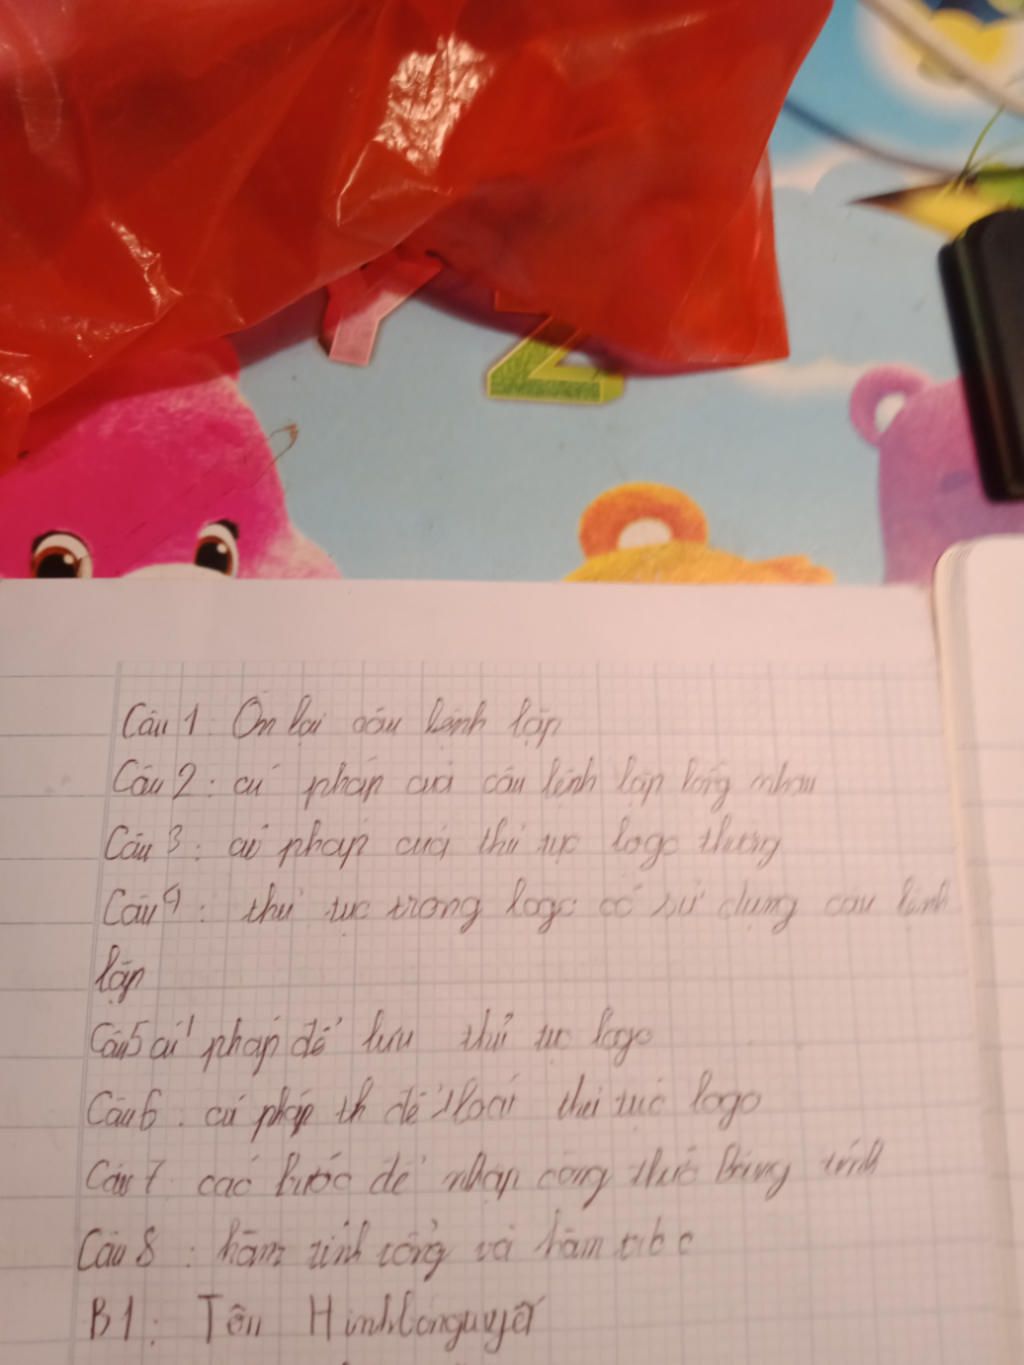 Z
Câu 1: Ôn lại câu lệnh lặp
Câu 2: cú pháp của câu lệnh lặp lồng nhau
Câu 3: cú pháp của thủ tục logo
Câu 4: thủ tục trong logo có sử dụng câu lệnh
lặp
Câu 5 cú pháp để lưu thủ tục logo
Câu 6: cú pháp th để thoát thủ tục logo
Câu 7 các bước để nhập công thức Bảng tính
Câu 8: hàm tính tổng và hàm
B1: Tên